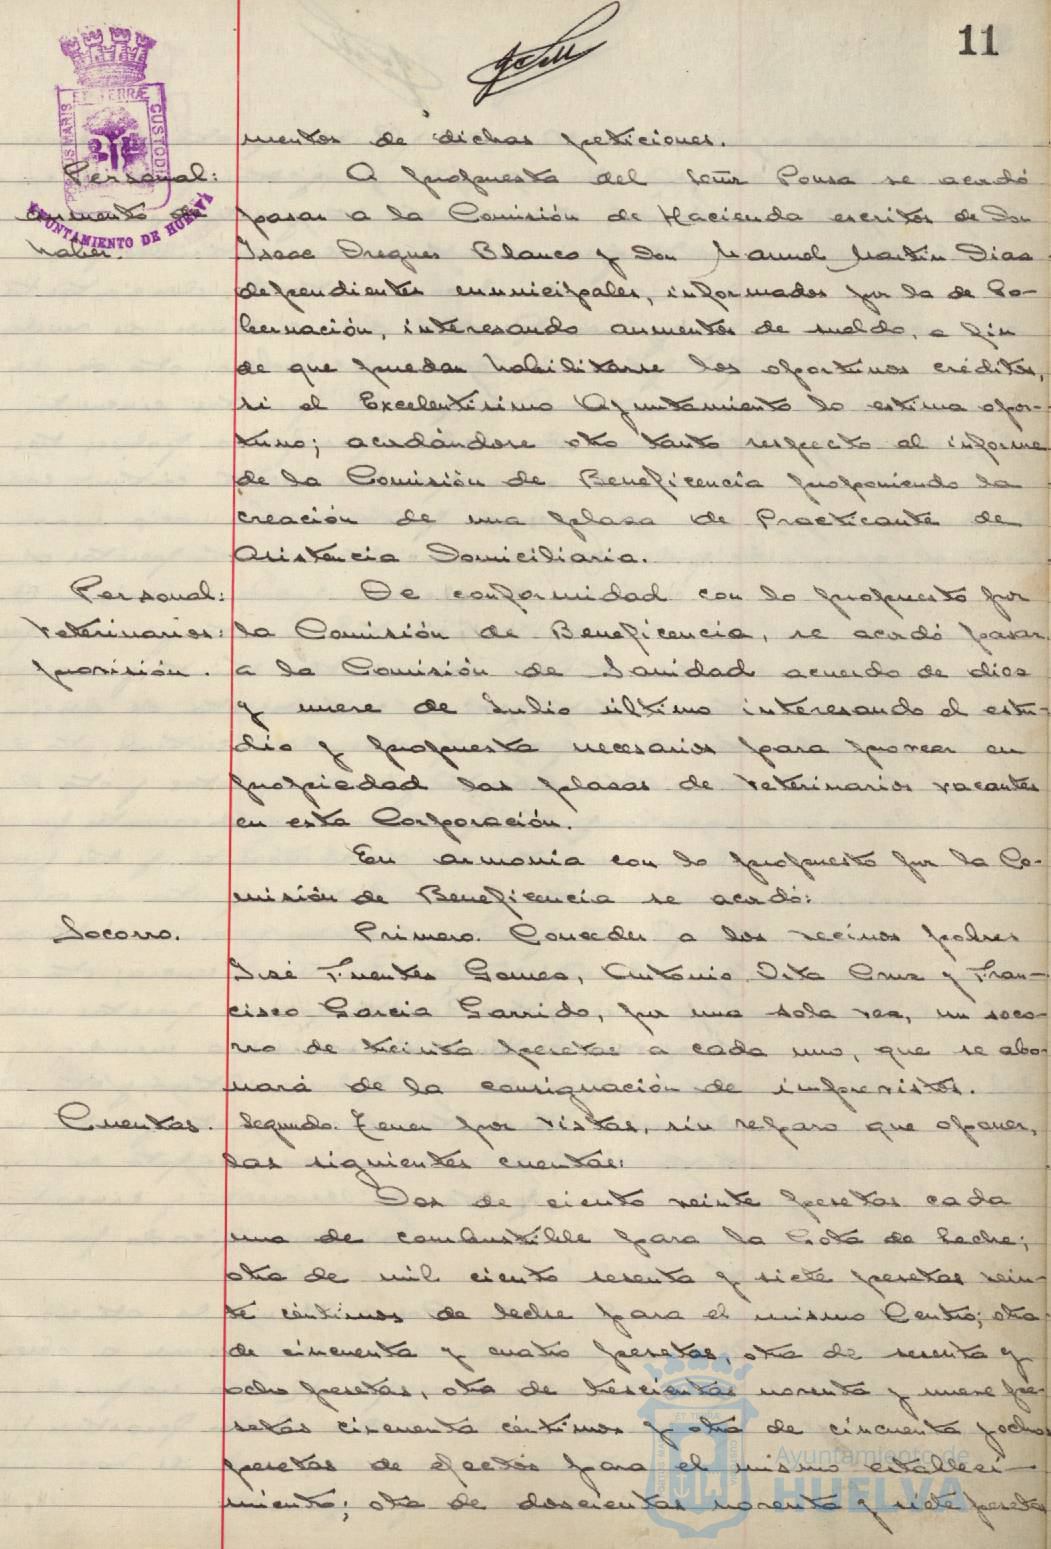 11
mentos de dichas peticiones.
Personal:
aumento de
haber.
A propuesta del señor Ponsa se acordó
pasar a la Comisión de Hacienda escritos de Don
Isaac Dregues Blanco y Don Manuel Martín Díaz
dependientes municipales, informados por la de Go-
bernación, interesando aumentos de sueldo, a fin
de que puedan habilitarse los oportunos créditos,
si el Excelentísimo Ayuntamiento lo estima opor-
tuno; acordándose otro tanto respecto al informe
de la Comisión de Beneficencia proponiendo la
creación de una plaza de Practicante de
Asistencia Domiciliaria.
Personal:
Veterinarios:
provisión.
De conformidad con lo propuesto por
la Comisión de Beneficencia, se acordó pasar
a la Comisión de Sanidad acuerdo de diez
y nueve de Julio último interesando el estu-
dio y propuesta necesarios para proveer en
propiedad las plazas de Veterinarios vacantes
en esta Corporación.
En armonía con lo propuesto por la Co-
misión de Beneficencia se acordó:
Socorro.
Primero. Conceder a los vecinos pobres
José Fuentes Gomez, Antonio Cruz y Fran-
cisco Garcia Garrido, por una sola vez, un soco-
rro de treinta pesetas a cada uno, que se abo-
nará de la consignación de imprevistos.
Cuentas.
Segundo. Tener por vistas, sin reparo que oponer,
las siguientes cuentas:
Dos de ciento veinte pesetas cada
una de combustible para la Gota de Leche;
otra de mil ciento sesenta y siete pesetas vein-
te céntimos de leche para el mismo Centro; otra
de cincuenta y cuatro pesetas, otra de sesenta y
ocho pesetas, otra de trescientas noventa y nueve pe-
setas cincuenta céntimos y otra de cincuenta y ocho
pesetas de efectos para el mismo estableci-
miento; otra de doscientas noventa y siete pesetas
PORTUS MARIS ET TERRÆ CUSTODIA
AYUNTAMIENTO DE HUELVA
Ayuntamiento de
HUELVA